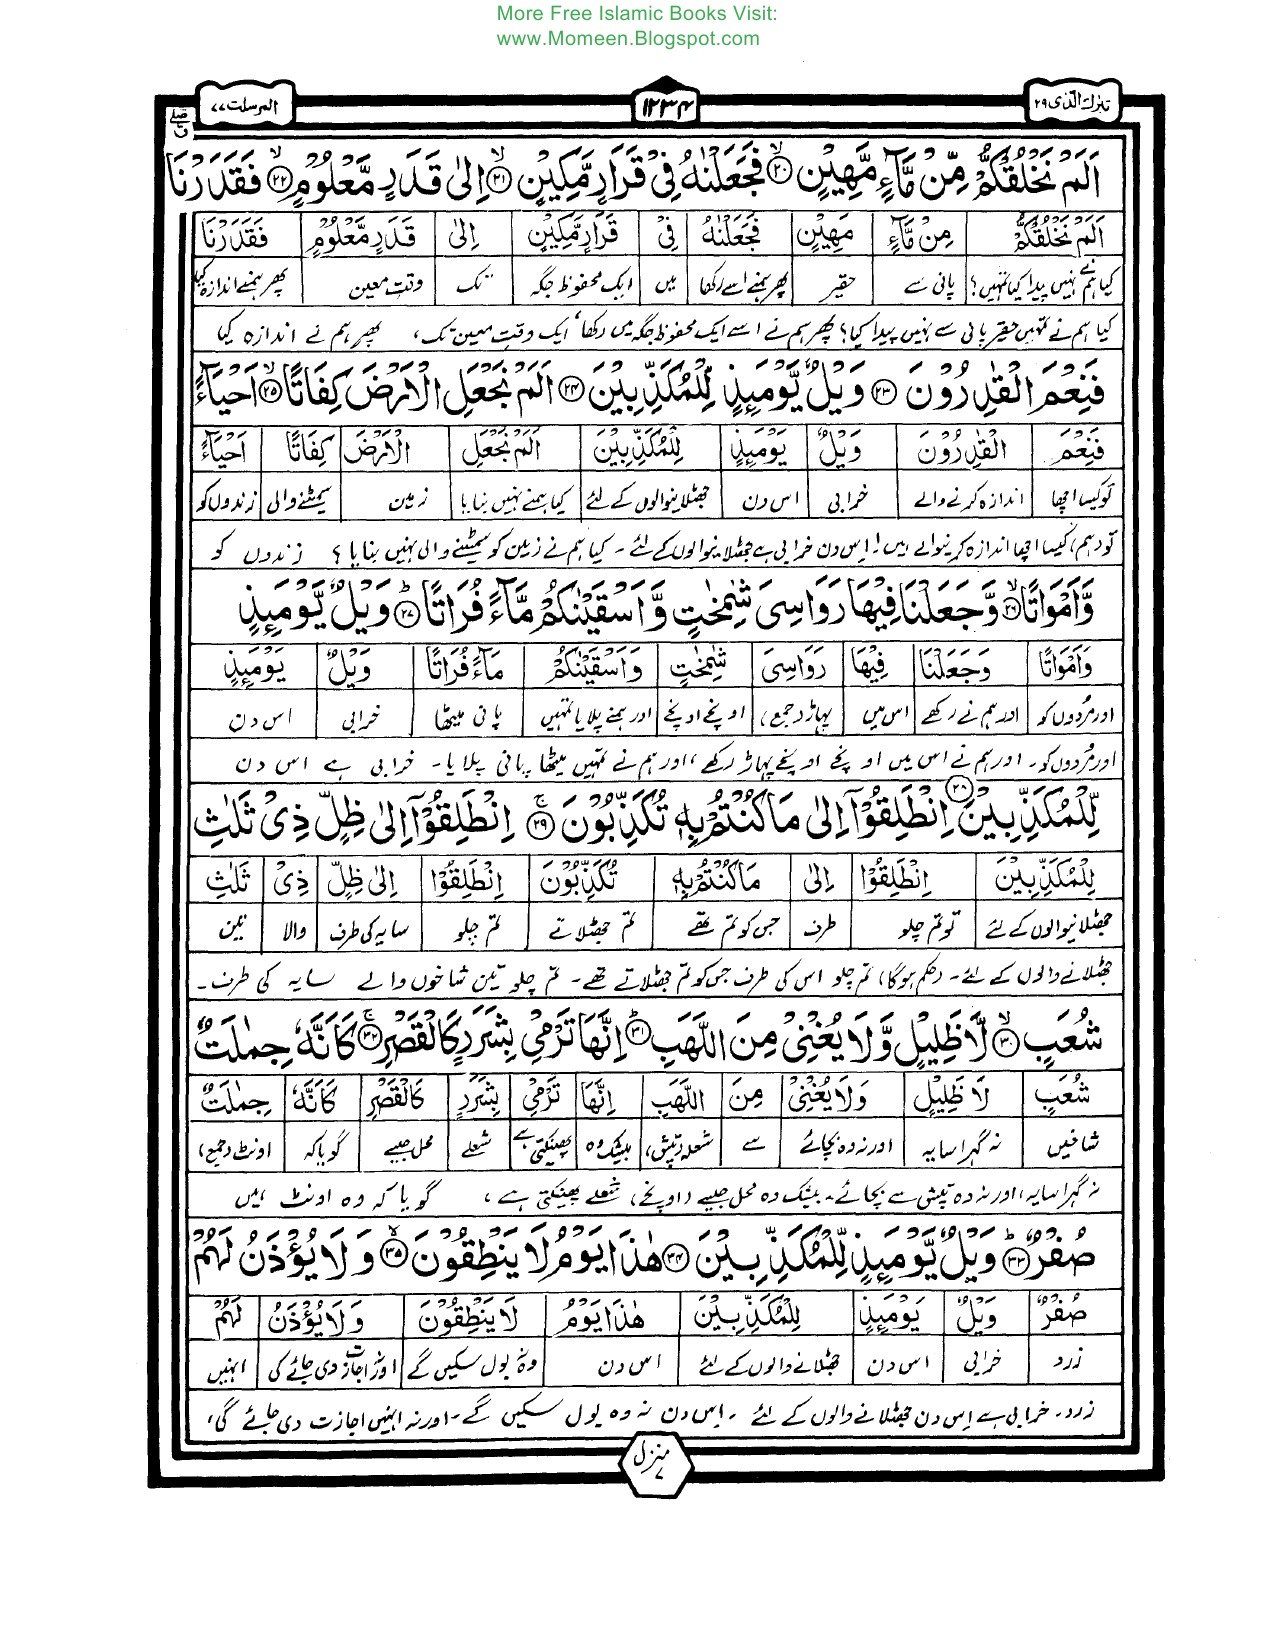 More Free Islamic Books Visit:
www.Momeen.Blogspot.com
تبٰرك الّذی ۲۹ ۱۲۳۴ المرسلت ۷۷
اَلَمْ نَخْلُقْكُّمْ مِّنْ مَّآءٍ مَّهِیْنٍ ۲۰ فَجَعَلْنٰهُ فِیْ قَرَارٍ مَّكِیْنٍ ۲۱ اِلٰی قَدَرٍ مَّعْلُوْمٍ ۲۲ فَقَدَرْنَا
اَلَمْ نَخْلُقْكُّمْ مِنْ مَّآءٍ مَهِیْنٍ فَجَعَلْنٰهُ فِیْ قَرَارٍ مَّكِیْنٍ اِلٰی قَدَرٍ مَّعْلُوْمٍ فَقَدَرْنَا
کیا ہم نے نہیں پیدا کیا تمہیں؟ پانی سے حقیر پھر ہمنے اسے رکھا میں ایک محفوظ جگہ تک وقت معین پھر ہمنے اندازہ کیا
کیا ہم نے تمہیں حقیر پانی سے نہیں پیدا کیا؟ پھر ہم نے اسے ایک محفوظ جگہ میں رکھا، ایک وقت معین تک، پھر ہم نے اندازہ کیا
فَنِعْمَ الْقٰدِرُوْنَ ۲۳ وَیْلٌ یَّوْمَىِٕذٍ لِّلْمُكَذِّبِیْنَ ۲۴ اَلَمْ نَجْعَلِ الْاَرْضَ كِفَاتًا ۲۵ اَحْیَآءً
فَنِعْمَ الْقٰدِرُوْنَ وَیْلٌ یَوْمَىِٕذٍ لِلْمُكَذِّبِیْنَ اَلَمْ نَجْعَلِ الْاَرْضَ كِفَاتًا اَحْیَآءً
تو کیسا اچھا اندازہ کرنے والے خرابی اس دن جھٹلانیوالوں کے لئے کیا ہمنے نہیں بنایا زمین سمیٹنے والی زندوں کو
تو (ہم) کیسا اچھا اندازہ کرنیوالے ہیں! اس دن خرابی ہے جھٹلانیوالوں کے لئے۔ کیا ہم نے زمین کو سمیٹنے والی نہیں بنایا؟ زندوں کو
وَّاَمْوَاتًا ۲۶ وَّجَعَلْنَا فِیْهَا رَوَاسِیَ شٰمِخٰتٍ وَّاَسْقَیْنٰكُمْ مَّآءً فُرَاتًا ۲۷ وَیْلٌ یَّوْمَىِٕذٍ
وَاَمْوَاتًا وَجَعَلْنَا فِیْهَا رَوَاسِیَ شٰمِخٰتٍ وَاَسْقَیْنٰكُمْ مَآءً فُرَاتًا وَیْلٌ یَوْمَىِٕذٍ
اور مُردوں کو اور ہم نے رکھے اس میں پہاڑ (جمع) اونچے اونچے اور ہمنے پلایا تمہیں پانی میٹھا خرابی اس دن
اور مُردوں کو۔ اور ہم نے اس میں اونچے اونچے پہاڑ رکھے، اور ہم نے تمہیں میٹھا پانی پلایا۔ خرابی ہے اس دن
لِّلْمُكَذِّبِیْنَ ۲۸ اِنْطَلِقُوْۤا اِلٰی مَا كُنْتُمْ بِهٖ تُكَذِّبُوْنَ ۲۹ اِنْطَلِقُوْۤا اِلٰی ظِلٍّ ذِیْ ثَلٰثِ
لِلْمُكَذِّبِیْنَ اِنْطَلِقُوْۤا اِلٰی مَا كُنْتُمْ بِهٖ تُكَذِّبُوْنَ اِنْطَلِقُوْۤا اِلٰی ظِلٍّ ذِیْ ثَلٰثِ
جھٹلانیوالوں کے لئے تو تم چلو طرف جس کو تم تھے تم جھٹلاتے تم چلو سایہ کی طرف والا تین
جھٹلانے والوں کے لئے۔ (حکم ہوگا) تم چلو اس کی طرف جس کو تم جھٹلاتے تھے۔ تم چلو تین شاخوں والے سایہ کی طرف۔
شُعَبٍ ۳۰ لَّا ظَلِیْلٍ وَّلَا یُغْنِیْ مِنَ اللَّهَبِ ۳۱ اِنَّهَا تَرْمِیْ بِشَرَرٍ كَالْقَصْرِ ۳۲ كَاَنَّهٗ جِمٰلَتٌ
شُعَبٍ لَا ظَلِیْلٍ وَلَا یُغْنِیْ مِنَ اللَّهَبِ اِنَّهَا تَرْمِیْ بِشَرَرٍ كَالْقَصْرِ كَاَنَّهٗ جِمٰلَتٌ
شاخیں نہ گہرا سایہ اور نہ وہ بچائے سے شعلہ (تپش) بیشک وہ پھینکتی ہے شعلے محل جیسے گویا کہ اونٹ (جمع)
نہ گہرا سایہ، اور نہ وہ تپش سے بچائے۔ بیشک وہ محل جیسے (اونچے) شعلے پھینکتی ہے، گویا کہ وہ اونٹ ہیں
صُفْرٌ ۳۳ وَیْلٌ یَّوْمَىِٕذٍ لِّلْمُكَذِّبِیْنَ ۳۴ هٰذَا یَوْمُ لَا یَنْطِقُوْنَ ۳۵ وَلَا یُؤْذَنُ لَهُمْ
صُفْرٌ وَیْلٌ یَوْمَىِٕذٍ لِلْمُكَذِّبِیْنَ هٰذَا یَوْمُ لَا یَنْطِقُوْنَ وَلَا یُؤْذَنُ لَهُمْ
زرد خرابی اس دن جھٹلانے والوں کے لئے اس دن وہ نہ بول سکیں گے اور نہ اجازت دی جائے گی انہیں
زرد۔ خرابی ہے اس دن جھٹلانے والوں کے لئے۔ اس دن نہ وہ بول سکیں گے۔ اور نہ انہیں اجازت دی جائے گی،
منزل ۷